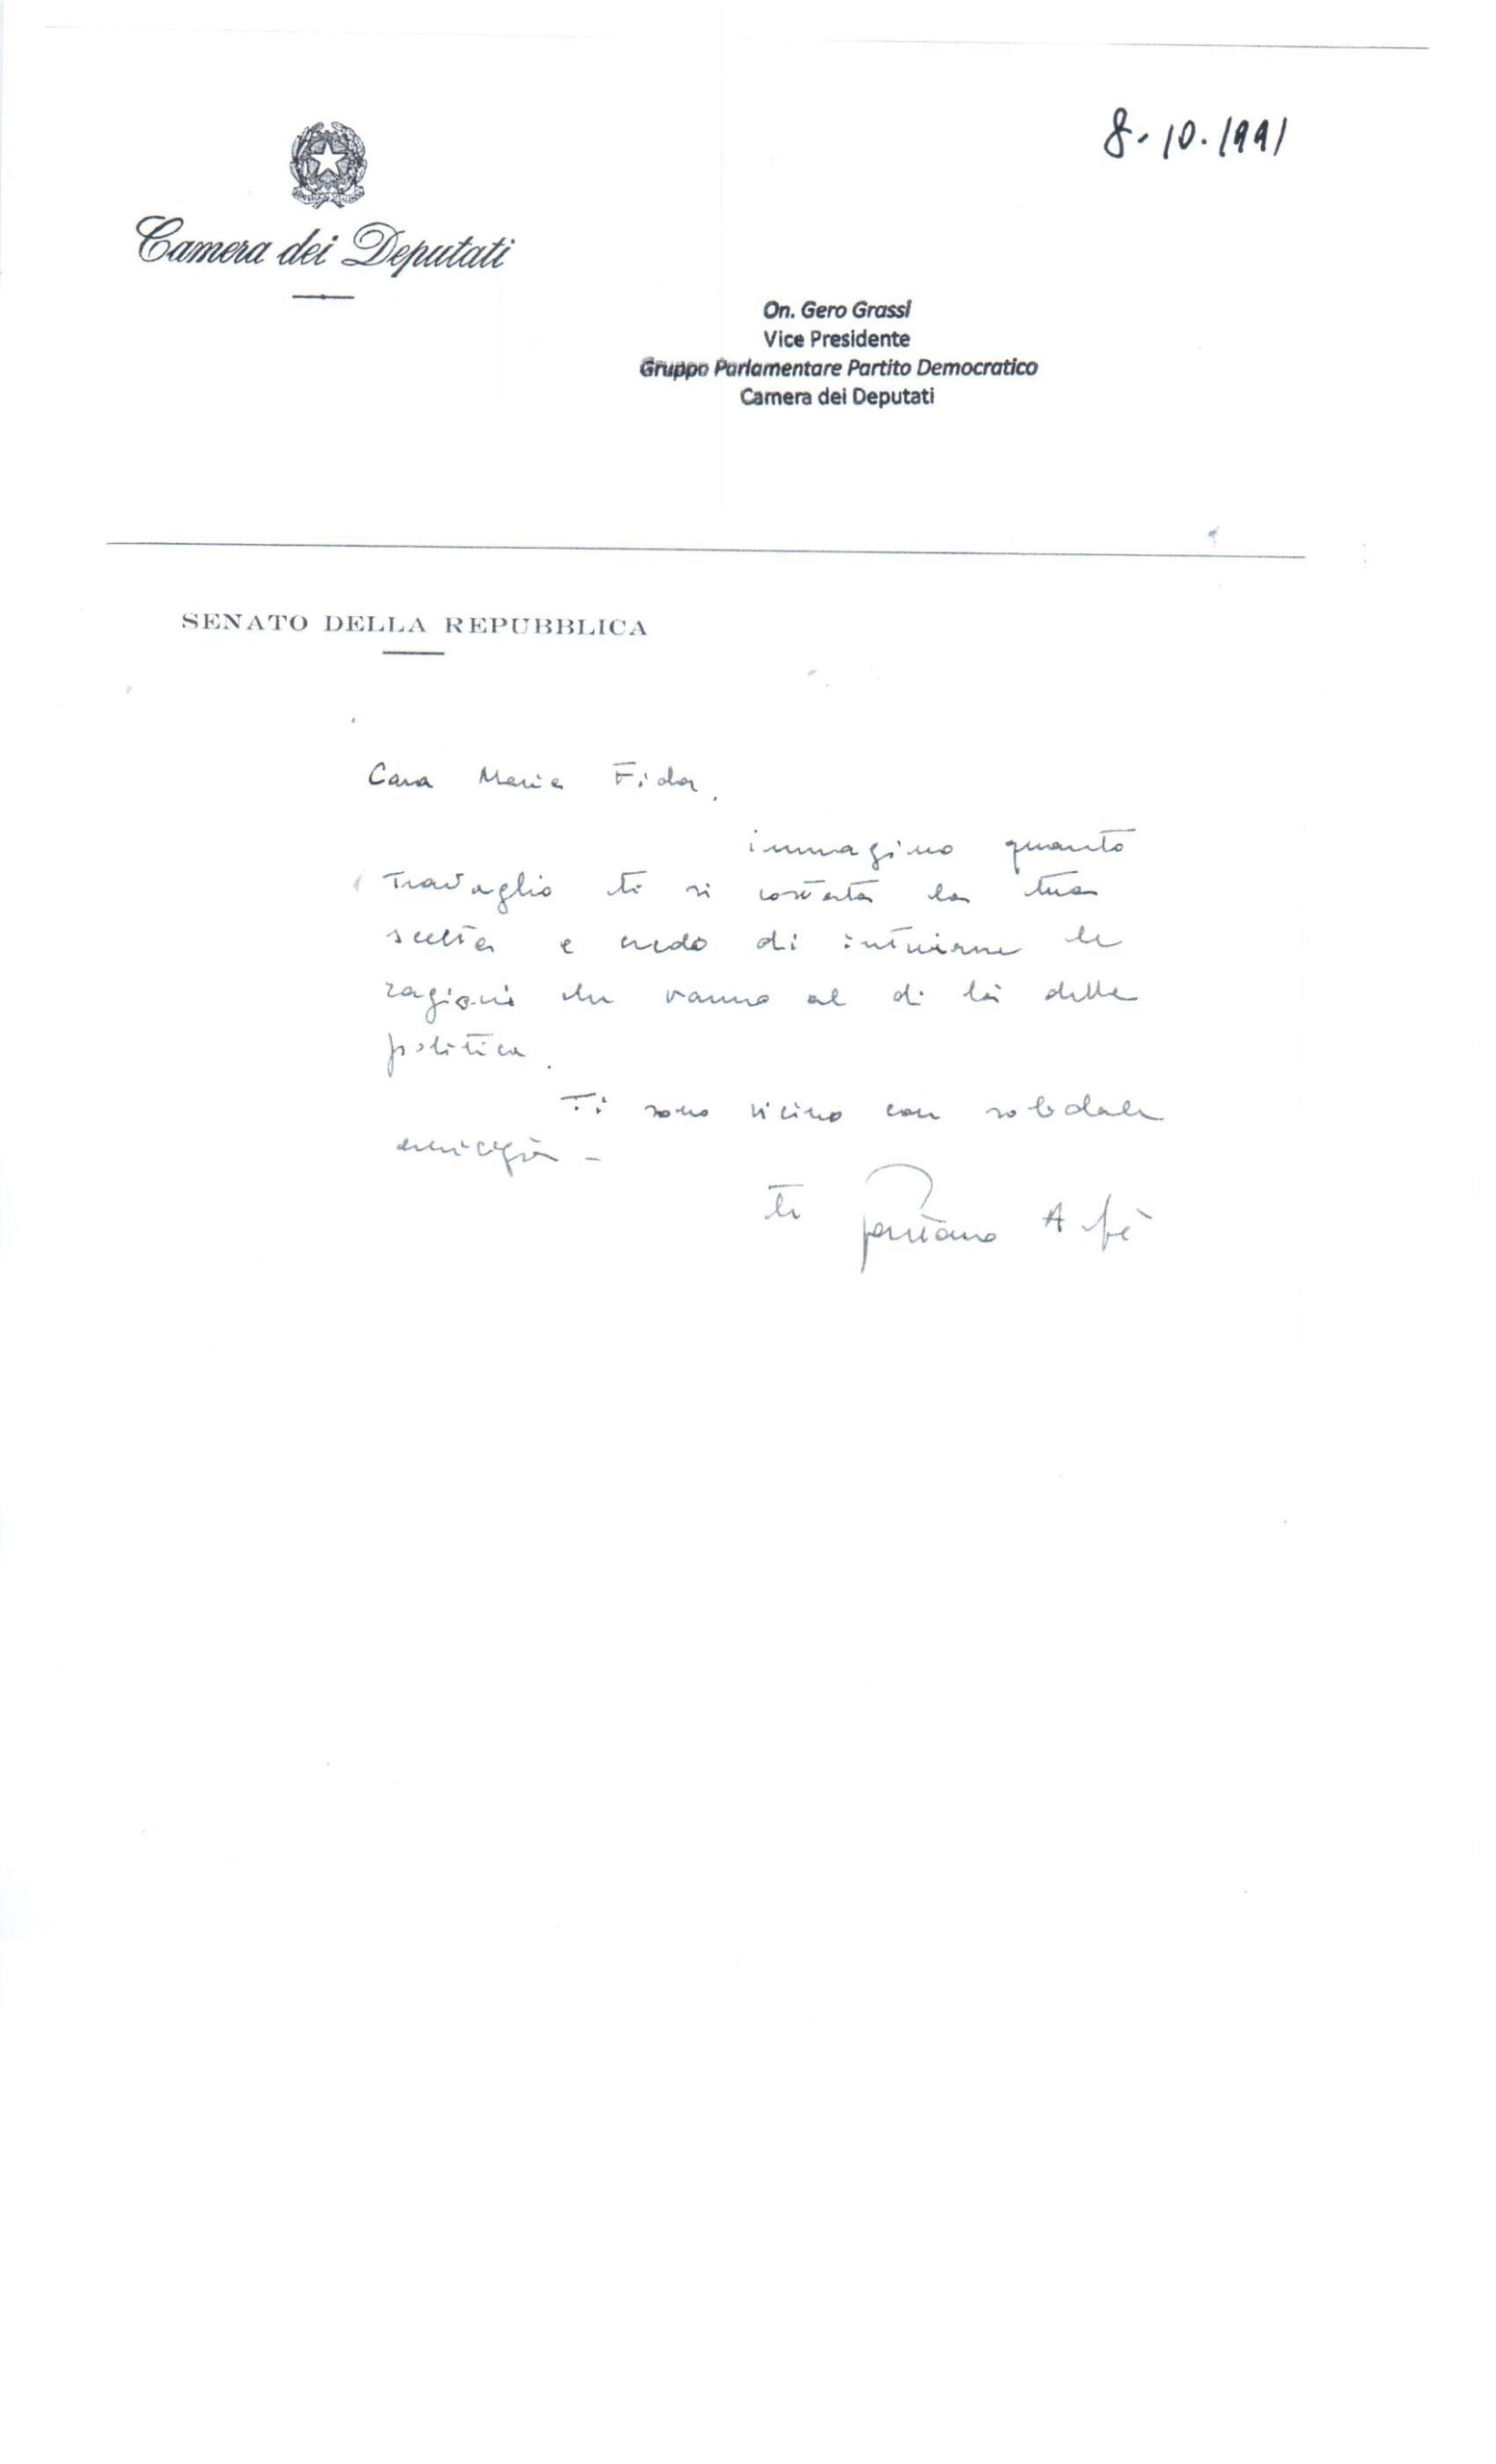 8.10.1991
Camera dei Deputati
On. Gero Grassi
Vice Presidente
Gruppo Parlamentare Partito Democratico
Camera dei Deputati
SENATO DELLA REPUBBLICA
Cara Maria Fida,
immagino quanto
travaglio ti si costata la tua
scelta e credo di intuirne le
ragioni che vanno al di là della
politica.
Ti sono vicino con solidale
amicizia -
tuo Gaetano Arfè